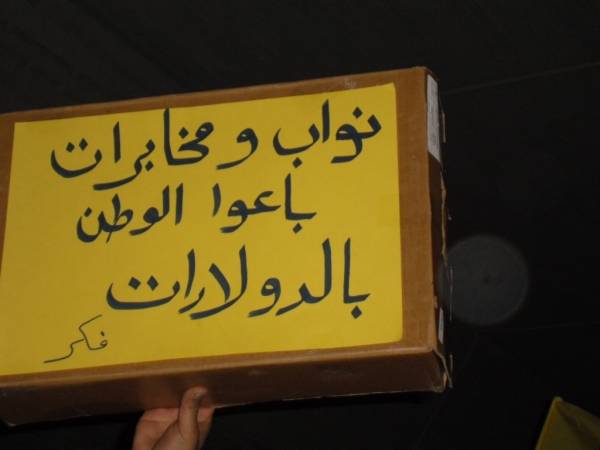 نواب و مخابرات
باعوا الوطن
بالدولارات
فكر